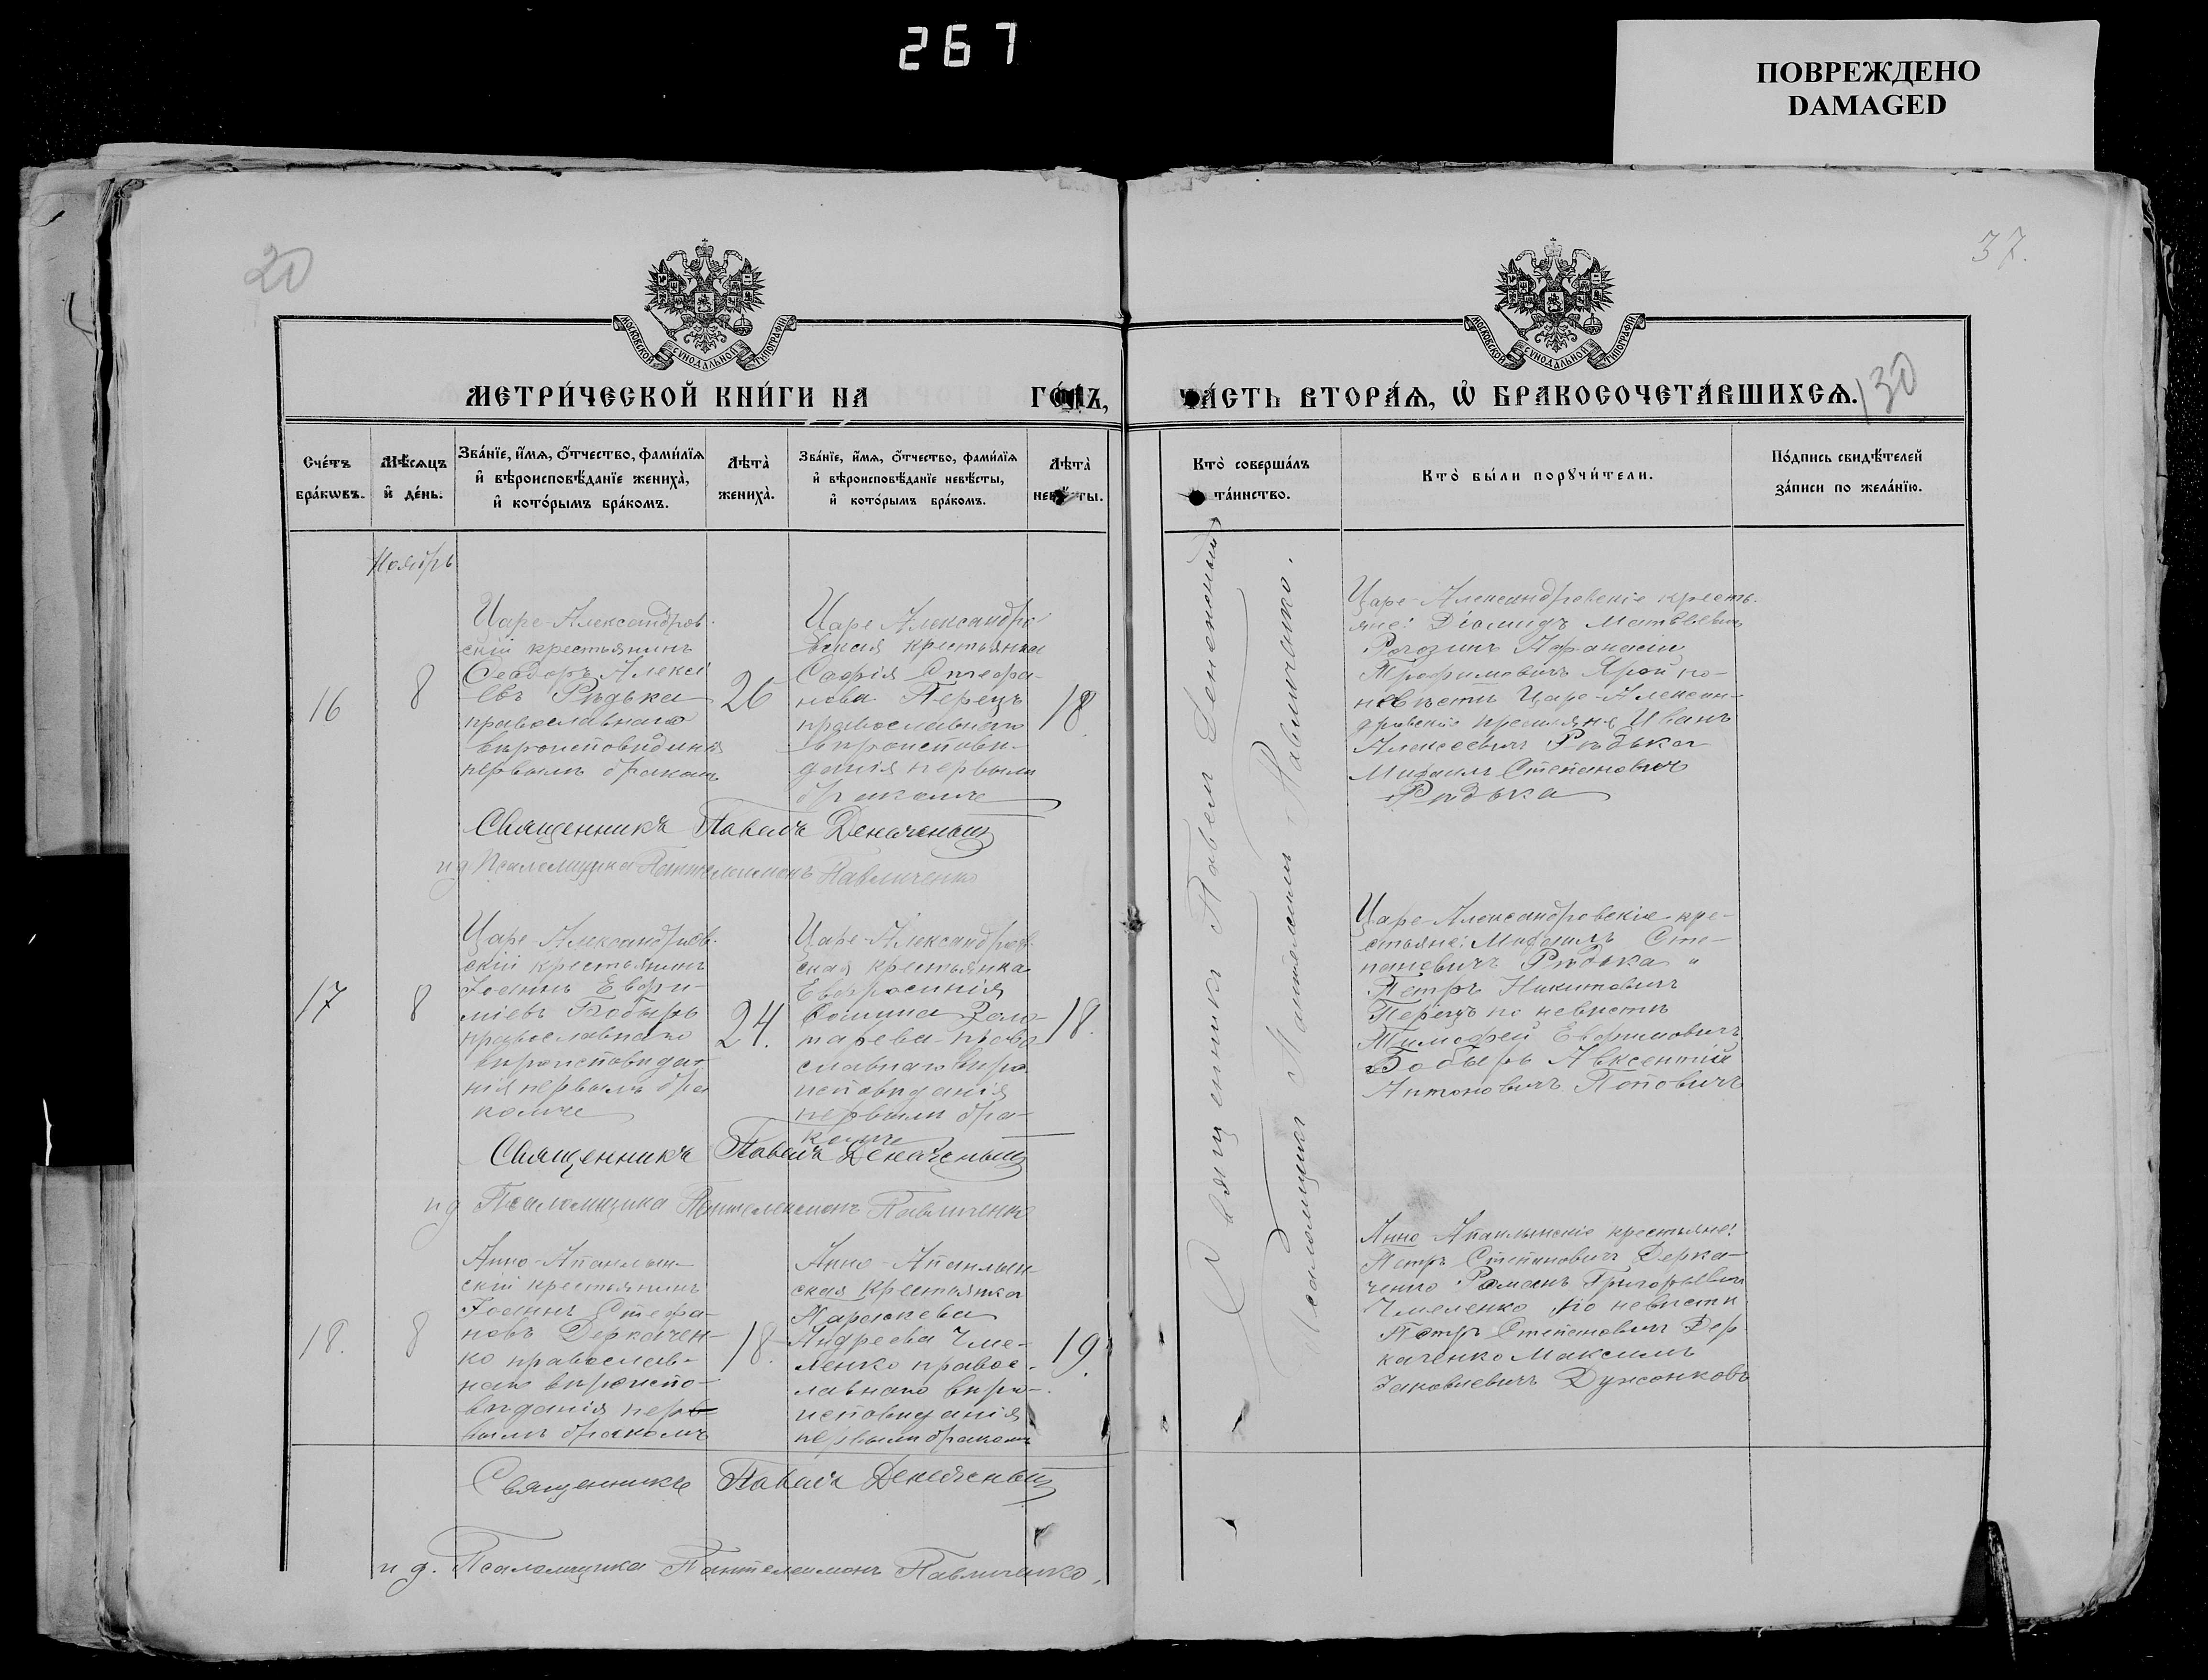 267
ПОВРЕЖДЕНО
DAMAGED
20
37.
МОСКОВСКОЙ СѴНОДАЛЬНОЙ ТИПОГРАФІИ
МОСКОВСКОЙ СѴНОДАЛЬНОЙ ТИПОГРАФІИ
МЕТРИ́ЧЕСКОЙ КНИ́ГИ НА ГО́ДЪ,
ЧА́СТЬ ВТОРА́Ѧ, Ѡ҆ БРАКОСОЧЕТА́ВШИХСѦ.
130
Сче́тъ бра́кѡвъ.
Мѣ́сѧцъ и҆ де́нь.
Зва́нїе, и҆́мѧ, ѻ҆́тчество, фами́лїѧ
и҆ вѣроисповѣ́данїе жениха̀,
и҆ кото́рымъ бра́комъ.
Лѣта̀ жениха̀.
Зва́нїе, и҆́мѧ, ѻ҆́тчество, фами́лїѧ
и҆ вѣроисповѣ́данїе невѣ́сты,
и҆ кото́рымъ бра́комъ.
Лѣта̀ невѣ́сты.
Кто̀ соверша́лъ
та́инство.
Кто̀ бы́ли порꙋчи́тели.
По́дпись свидѣ́телей
за́писи по жела́нїю.
Ноябрь
16
8
Царе-Александров-
скій крестьянинъ
Ѳеодоръ Алексі
евъ Рѣдька
православнаго
вѣроисповѣданія
первымъ бракомъ
26
Царе Александро
вская крестьянка
Софія Стефа-
нова Перецъ
православнаго
вѣроисповѣ-
данія первымъ
бракомъ
18
Царе-Александровскіе кресть-
яне: Діомидъ Матвѣевичъ
Рогозинъ Афанасій
Трофимовичъ Ярой по
невѣстѣ Царе-Алексан-
дровскіе крестьяне Иванъ
Алексеевичъ Рѣдька
Михаилъ Степановичъ
Рѣдька
Священникъ Павелъ
и д Псаломщика Пантелеимонъ Павличенко
17
8
Царе-Александров-
скій крестьянинъ
Іоаннъ Евфи-
міевъ Бобырь
православнаго
вѣроисповѣда-
нія первымъ бра
комъ
24.
Царе-Александров-
ская крестьянка
Евфросинія
Ѳомина Золо-
тарева право
славнаго вѣро
исповѣданія
первымъ бра-
комъ
18.
Царе-Александровскіе кре-
стьяне: Михаилъ Сте-
пановичъ Рѣдька и
Петръ Никитовичъ
Перецъ по невѣстѣ
Тимофей Евфимовичъ
Бобырь Авксентій
Антоновичъ Поповичъ
Священникъ Павелъ
и д Псаломщика Пантелеимонъ Павличенко
18.
8
Анно-Апанлын-
скій крестьянинъ
Іоаннъ Стефа-
новъ Деркачен-
ко православ-
наго вѣроиспо-
вѣданія пер
вымъ бракомъ
18.
Анно-Апанлын-
ская крестьянка
Параскева
Андреева Чме-
ленко правос-
лавнаго вѣро-
исповѣданія
первымъ бракомъ
19.
Анно Апанлынскіе крестьяне:
Петръ Степановичъ Дерка-
ченко Романъ Григорьевичъ
Чмеленко по невѣстѣ
Петръ Степановичъ Дер
каченко Максимъ
Іаковлевичъ
Священникъ Павелъ
и д. Псаломщика Пантелеимонъ Павличенко.
Священникъ Павелъ
Псаломщикъ Пантелеимонъ Павличенко.